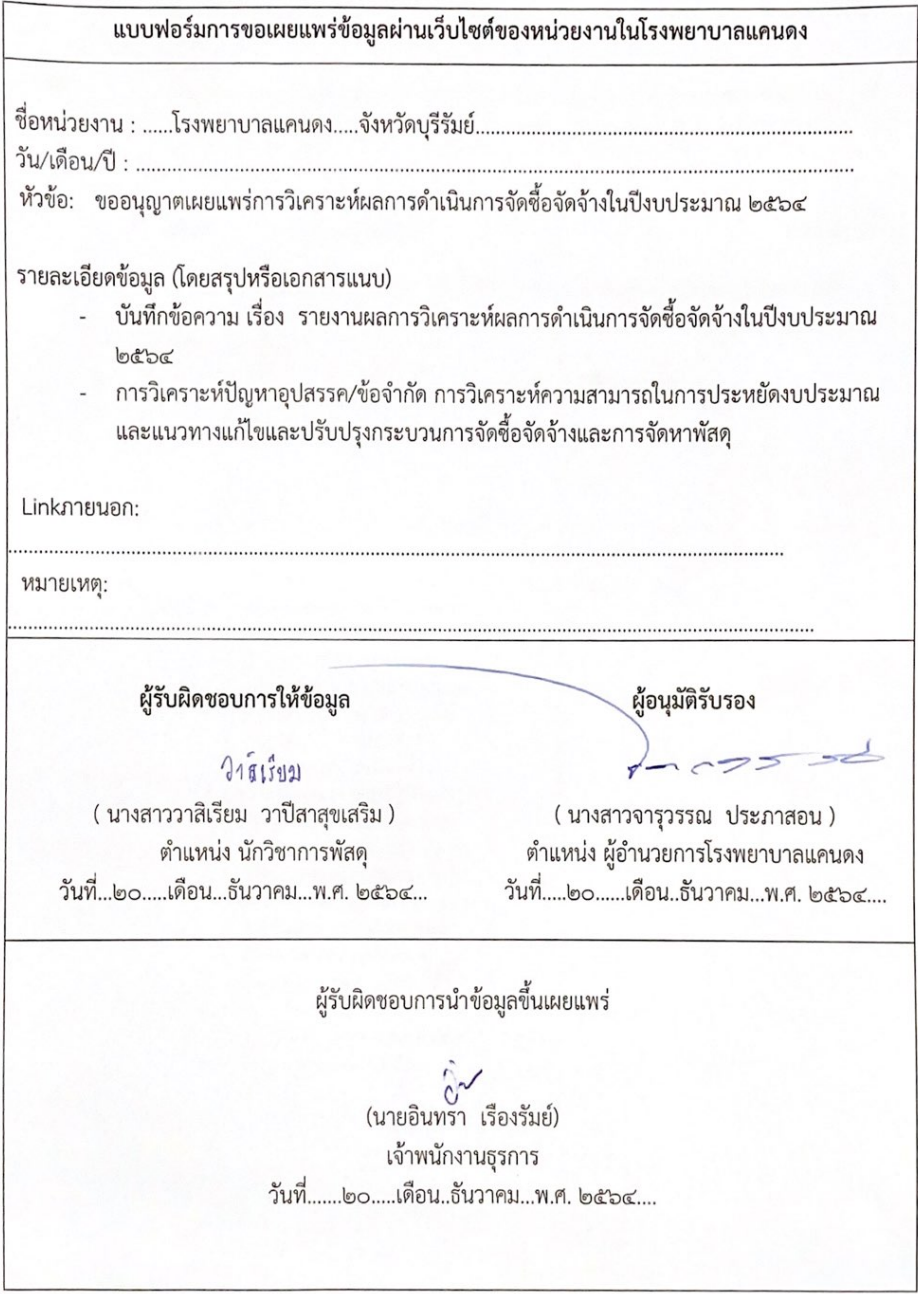 แบบฟอร์มการขอเผยแพร่ข้อมูลผ่านเว็บไซต์ของหน่วยงานในโรงพยาบาลแคนดง
ชื่อหน่วยงาน : ......โรงพยาบาลแคนดง.....จังหวัดบุรีรัมย์..........................................................................................
วัน/เดือน/ปี : ..........................................................................................................................................................
หัวข้อ: ขออนุญาตเผยแพร่การวิเคราะห์ผลการดำเนินการจัดซื้อจัดจ้างในปีงบประมาณ ๒๕๖๔
รายละเอียดข้อมูล (โดยสรุปหรือเอกสารแนบ)
- บันทึกข้อความ เรื่อง รายงานผลการวิเคราะห์ผลการดำเนินการจัดซื้อจัดจ้างในปีงบประมาณ
๒๕๖๔
- การวิเคราะห์ปัญหาอุปสรรค/ข้อจำกัด การวิเคราะห์ความสามารถในการประหยัดงบประมาณ
และแนวทางแก้ไขและปรับปรุงกระบวนการจัดซื้อจัดจ้างและการจัดหาพัสดุ
Linkภายนอก:
......................................................................................................................................................
หมายเหตุ:
............................................................................................................................................................
ผู้รับผิดชอบการให้ข้อมูล ผู้อนุมัติรับรอง
วาสิเรียม
( นางสาววาสิเรียม วาปีสาสุขเสริม ) ( นางสาวจารุวรรณ ประภาสอน )
ตำแหน่ง นักวิชาการพัสดุ ตำแหน่ง ผู้อำนวยการโรงพยาบาลแคนดง
วันที่...๒๐.....เดือน...ธันวาคม...พ.ศ. ๒๕๖๔... วันที่.....๒๐......เดือน..ธันวาคม...พ.ศ. ๒๕๖๔....
ผู้รับผิดชอบการนำข้อมูลขึ้นเผยแพร่
(นายอินทรา เรืองรัมย์)
เจ้าพนักงานธุรการ
วันที่.......๒๐.....เดือน..ธันวาคม...พ.ศ. ๒๕๖๔....